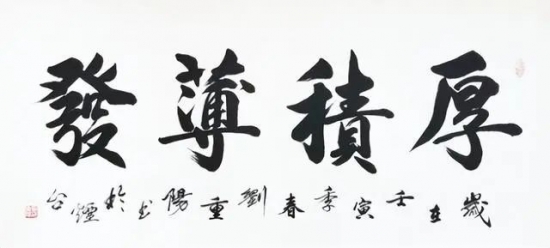 厚積薄發
歲在壬寅季春劉重陽書於煙台